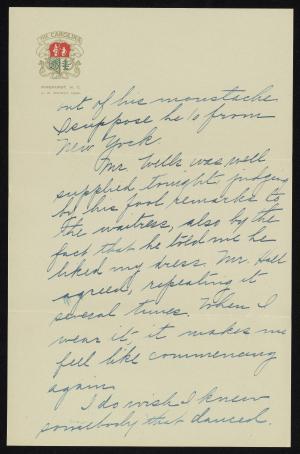 THE CAROLINA
PINEHURST, N. C.
out of his moustache
I suppose he is from
New York.
Mr. Wells was well
supplied tonight, judging
by his fool remarks to
the waitress, also by the
fact that he told me he
liked my dress. Mr. Hall
agreed, repeating it
several times. When I
wear it, it makes me
feel like commencing
again.
I do wish I knew
somebody that danced.